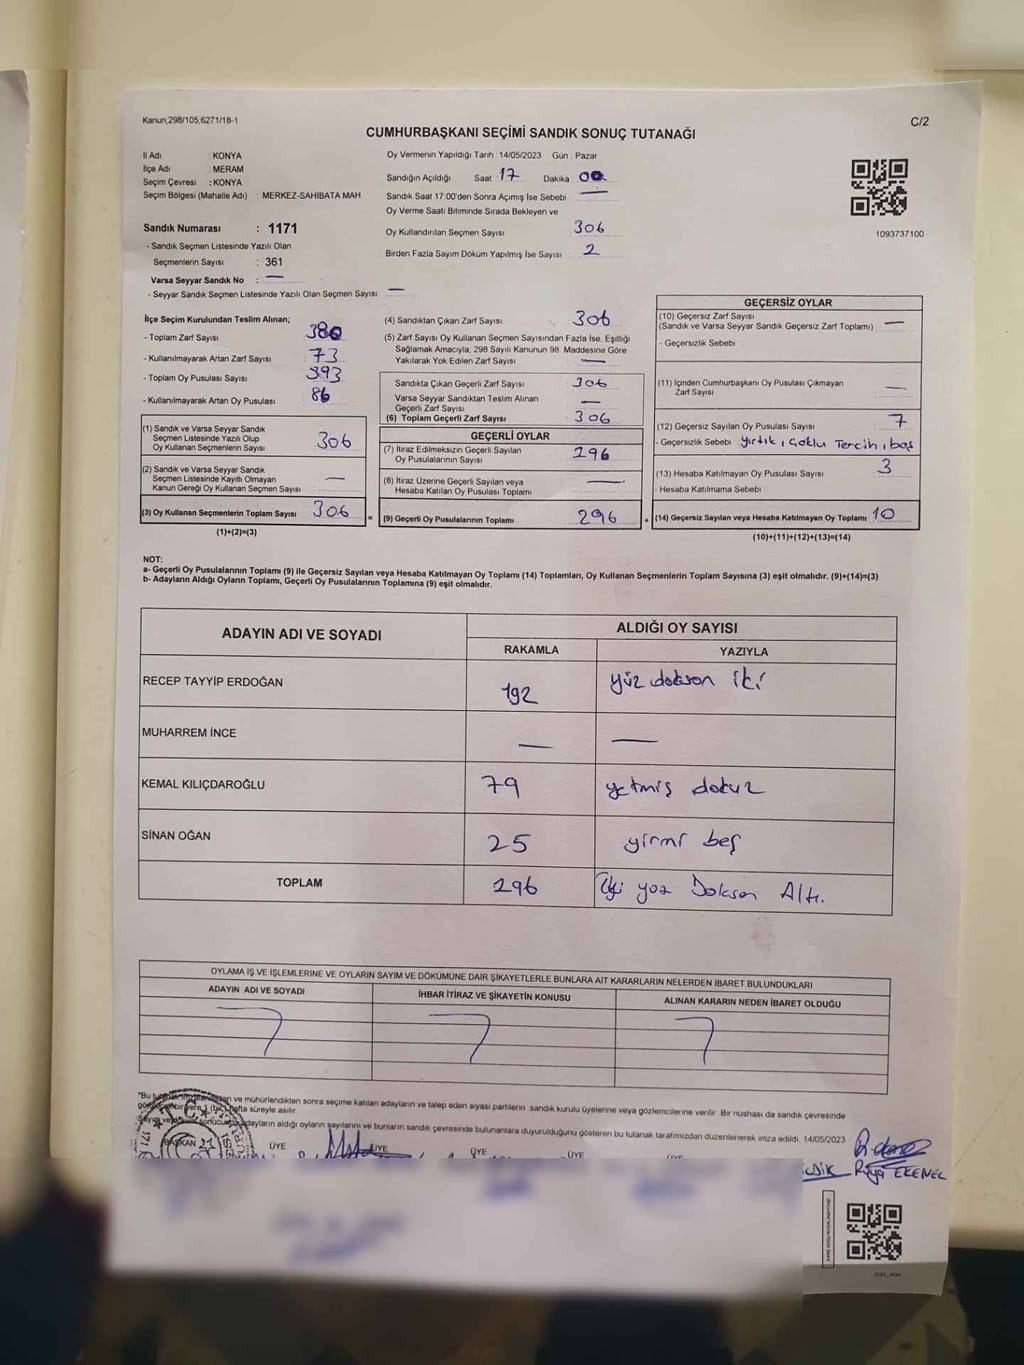 Kanun;298/105;6271/18-1
C/2
CUMHURBAŞKANI SEÇİMİ SANDIK SONUÇ TUTANAĞI
İl Adı : KONYA
İlçe Adı : MERAM
Seçim Çevresi : KONYA
Seçim Bölgesi (Mahalle Adı) : MERKEZ-SAHIBATA MAH
Oy Vermenin Yapıldığı Tarih : 14/05/2023 Gün : Pazar
Sandığın Açıldığı Saat 17 Dakika 00
Sandık Saat 17:00'den Sonra Açımış İse Sebebi —
Oy Verme Saati Bitiminde Sırada Bekleyen ve
Oy Kullandırılan Seçmen Sayısı 306
Birden Fazla Sayım Döküm Yapılmış İse Sayısı : 2
1093737100
Sandık Numarası : 1171
- Sandık Seçmen Listesinde Yazılı Olan
Seçmenlerin Sayısı : 361
Varsa Seyyar Sandık No : —
- Seyyar Sandık Seçmen Listesinde Yazılı Olan Seçmen Sayısı: —
İlçe Seçim Kurulundan Teslim Alınan;
- Toplam Zarf Sayısı 380
- Kullanılmayarak Artan Zarf Sayısı 73
- Toplam Oy Pusulası Sayısı 393
- Kullanılmayarak Artan Oy Pusulası 86
(1) Sandık ve Varsa Seyyar Sandık
Seçmen Listesinde Yazılı Olup
Oy Kullanan Seçmenlerin Sayısı 306
(2) Sandık ve Varsa Seyyar Sandık
Seçmen Listesinde Kayıtlı Olmayan
Kanun Gereği Oy Kullanan Seçmen Sayısı —
(3) Oy Kullanan Seçmenlerin Toplam Sayısı 306
(1)+(2)=(3)
(4) Sandıktan Çıkan Zarf Sayısı 306
(5) Zarf Sayısı Oy Kullanan Seçmen Sayısından Fazla İse, Eşitliği
Sağlamak Amacıyla, 298 Sayılı Kanunun 98. Maddesine Göre
Yakılarak Yok Edilen Zarf Sayısı —
Sandıkta Çıkan Geçerli Zarf Sayısı 306
Varsa Seyyar Sandıktan Teslim Alınan
Geçerli Zarf Sayısı —
(6) Toplam Geçerli Zarf Sayısı 306
GEÇERLİ OYLAR
(7) İtiraz Edilmeksizin Geçerli Sayılan
Oy Pusulalarının Sayısı 296
(8) İtiraz Üzerine Geçerli Sayılan veya
Hesaba Katılan Oy Pusulası Toplamı —
= (9) Geçerli Oy Pusulalarının Toplamı 296
GEÇERSİZ OYLAR
(10) Geçersiz Zarf Sayısı
(Sandık ve Varsa Seyyar Sandık Geçersiz Zarf Toplamı) —
- Geçersizlik Sebebi :
(11) İçinden Cumhurbaşkanı Oy Pusulası Çıkmayan
Zarf Sayısı —
(12) Geçersiz Sayılan Oy Pusulası Sayısı 7
- Geçersizlik Sebebi : yırtık, Çoklu Tercih, boş
(13) Hesaba Katılmayan Oy Pusulası Sayısı 3
- Hesaba Katılmama Sebebi :
+ (14) Geçersiz Sayılan veya Hesaba Katılmayan Oy Toplamı 10
(10)+(11)+(12)+(13)=(14)
NOT:
a- Geçerli Oy Pusulalarının Toplamı (9) ile Geçersiz Sayılan veya Hesaba Katılmayan Oy Toplamı (14) Toplamları, Oy Kullanan Seçmenlerin Toplam Sayısına (3) eşit olmalıdır. (9)+(14)=(3)
b- Adayların Aldığı Oyların Toplamı, Geçerli Oy Pusulalarının Toplamına (9) eşit olmalıdır.
ADAYIN ADI VE SOYADI
ALDIĞI OY SAYISI
RAKAMLA YAZIYLA
RECEP TAYYİP ERDOĞAN 192 yüz dokson iki
MUHARREM İNCE — —
KEMAL KILIÇDAROĞLU 79 yetmiş dokuz
SİNAN OĞAN 25 yirmi beş
TOPLAM 296 iki yüz Dokson Altı.
OYLAMA İŞ VE İŞLEMLERİNE VE OYLARIN SAYIM VE DÖKÜMÜNE DAİR ŞİKAYETLERLE BUNLARA AİT KARARLARIN NELERDEN İBARET BULUNDUKLARI
ADAYIN ADI VE SOYADI
İHBAR İTİRAZ VE ŞİKAYETİN KONUSU
ALINAN KARARIN NEDEN İBARET OLDUĞU
"Bu ve mühürlendikten sonra seçime katılan adayların ve talep eden siyasi partilerin sandık kurulu üyelerine veya gözlemcilerine verilir. Bir nüshası da sandık çevresinde
hafta süreyle asılır.
adayların aldığı oyların sayılarını ve bunların sandık çevresinde bulunanlara duyurulduğunu gösteren bu tutanak tarafımızdan düzenlenerek imza edildi. 14/05/2023
T.C.
BAŞKAN
ÜYE
ÜYE
ÜYE
ÜYE
EKENEL